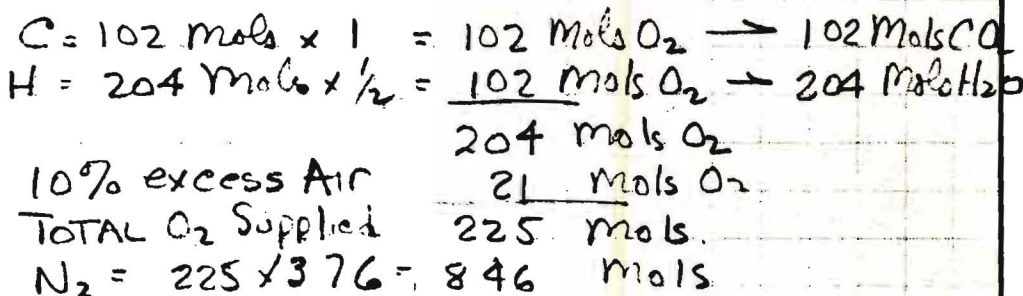 C = 102 mols x 1 = 102 Mols O2 → 102 Mols CO2
H = 204 Mols x 1/2 = 102 mols O2 → 204 Mols H2O
204 mols O2
10% excess Air 21 Mols O2
TOTAL O2 Supplied 225 mols.
N2 = 225 x 376 = 846 mols